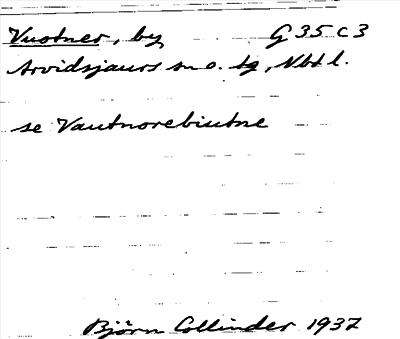 Vuotner, by G 35 c 3
Arvidsjaurs sn o. tg, Nbtl.
se Vautnorebiutne
Björn Collinder 1937